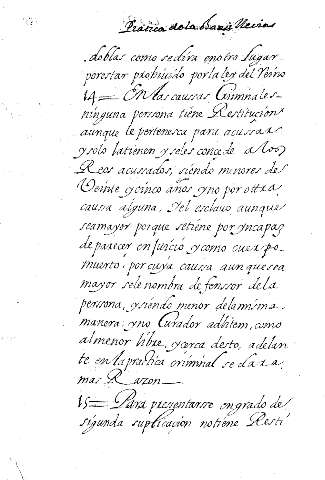 Pratica de la Bare Nevins
doblas como sedira enotro lugar
porestar prohiuido por la ley del Reino
14= En las caussas Criminales
ninguna persona tiene Restitucion
aunque le pertenesca para acussar
y solo latienen y seles concede a los
Reos acusados, siendo menores de
Veinte y cinco años, y no por otra
caussa alguna. Y el esclavo aunque
seamayor porque setiene por yncapaz
de parecer en juicio, y como cuerpo
muerto: por cuya caussa aunque sea
mayor sele nombra defenssor de la
perssona, y siendo menor dela misma
manera; y no Curador adlitem, como
al menor libre. y cerca desto, adelan
te en la practica criminal se dara
mas Razon
15= Para pressentarsse en grado de
sigunda suplicacion no tiene Resti